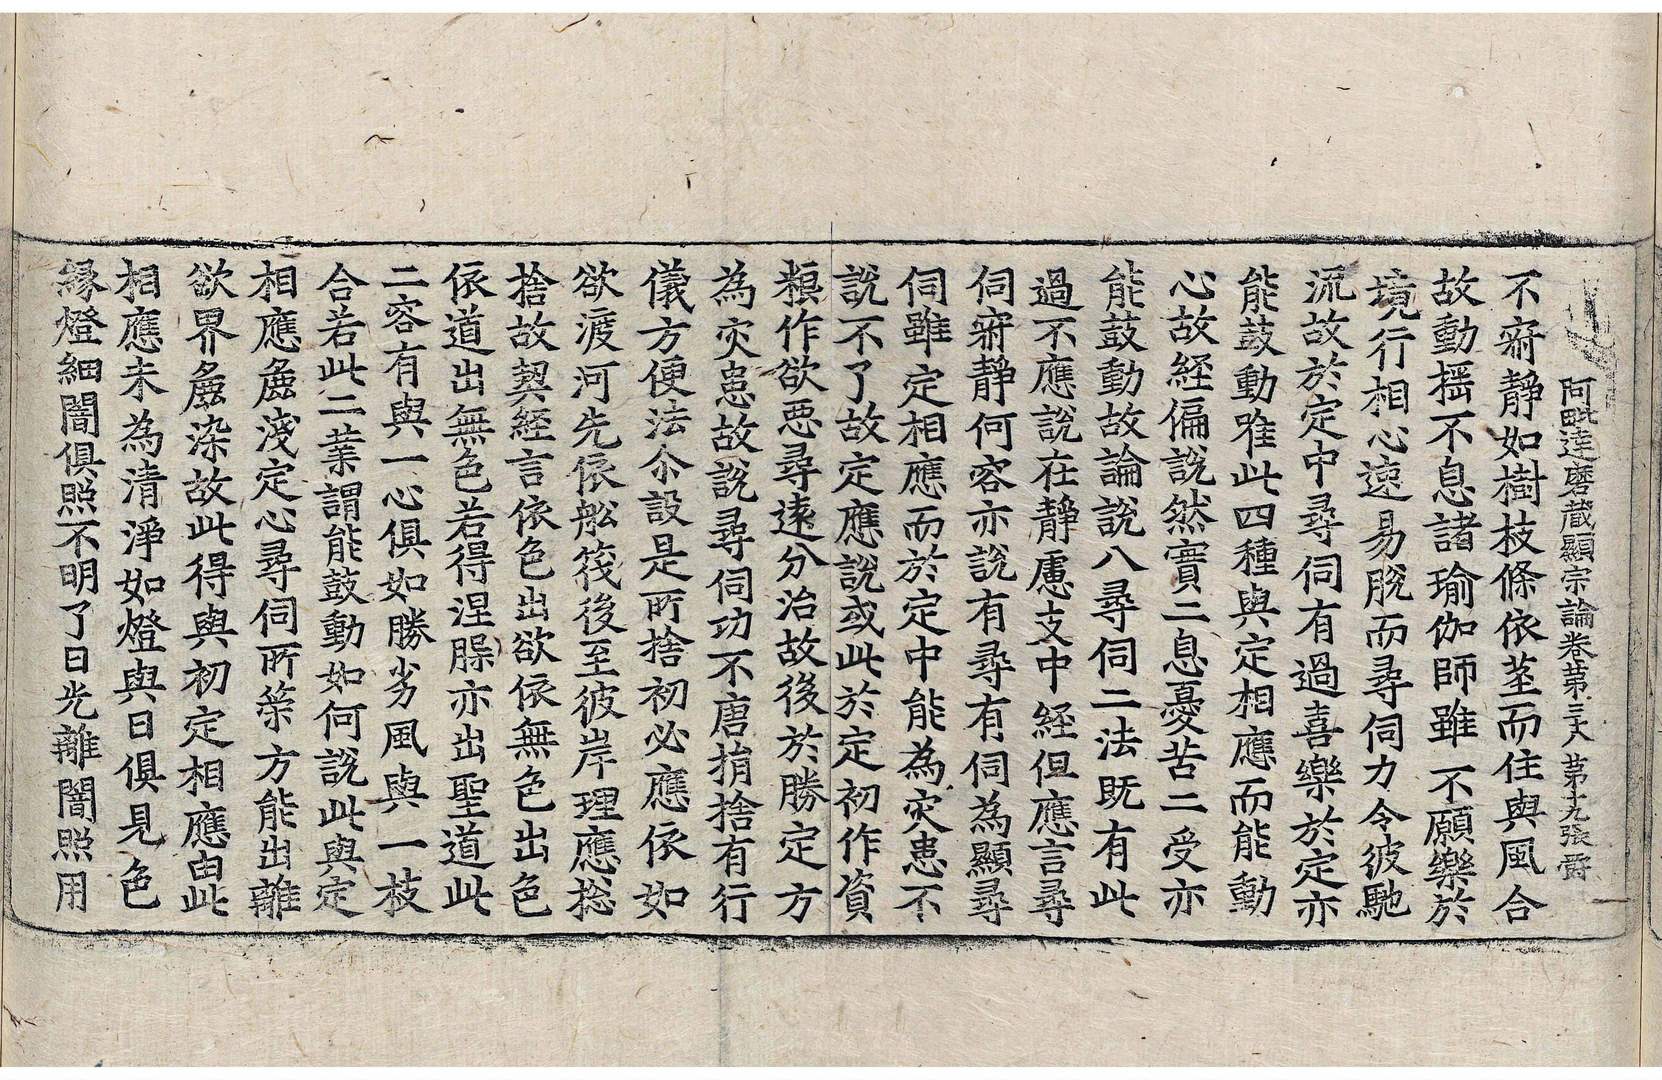 阿毗達磨藏顯宗論卷第三十八 第十九張 爵
不寂靜如樹枝條依莖而住與風合
故動搖不息諸瑜伽師雖不願樂於
境行相心速易脫而尋伺力令彼馳
流故於定中尋伺有過喜樂於定亦
能鼓動唯此四種與定相應而能動
心故経偏說然實二息憂苦二受亦
能鼓動故論說八尋伺二法既有此
過不應說在靜慮支中経但應言尋
伺寂靜何容亦說有尋有伺為顯尋
伺雖定相應而於定中能為災患不
說不了故定應說或此於定初作資
糧作欲惡尋遠分治故後於勝定方
為災患故說尋伺功不唐捐捨有行
儀方便法尒設是所捨初必應依如
欲渡河先依舩筏後至彼岸理應捴
捨故契経言依色出欲依無色出色
依道出無色若得涅槃亦出聖道此
二容有與一心俱如勝劣風與一枝
合若此二業謂能鼓動如何說此與定
相應麁淺定心尋伺所策方能出離
欲界麁染故此得與初定相應由此
相應未為清淨如燈與日俱見色
緣燈細闇俱照不明了日光離闇照用